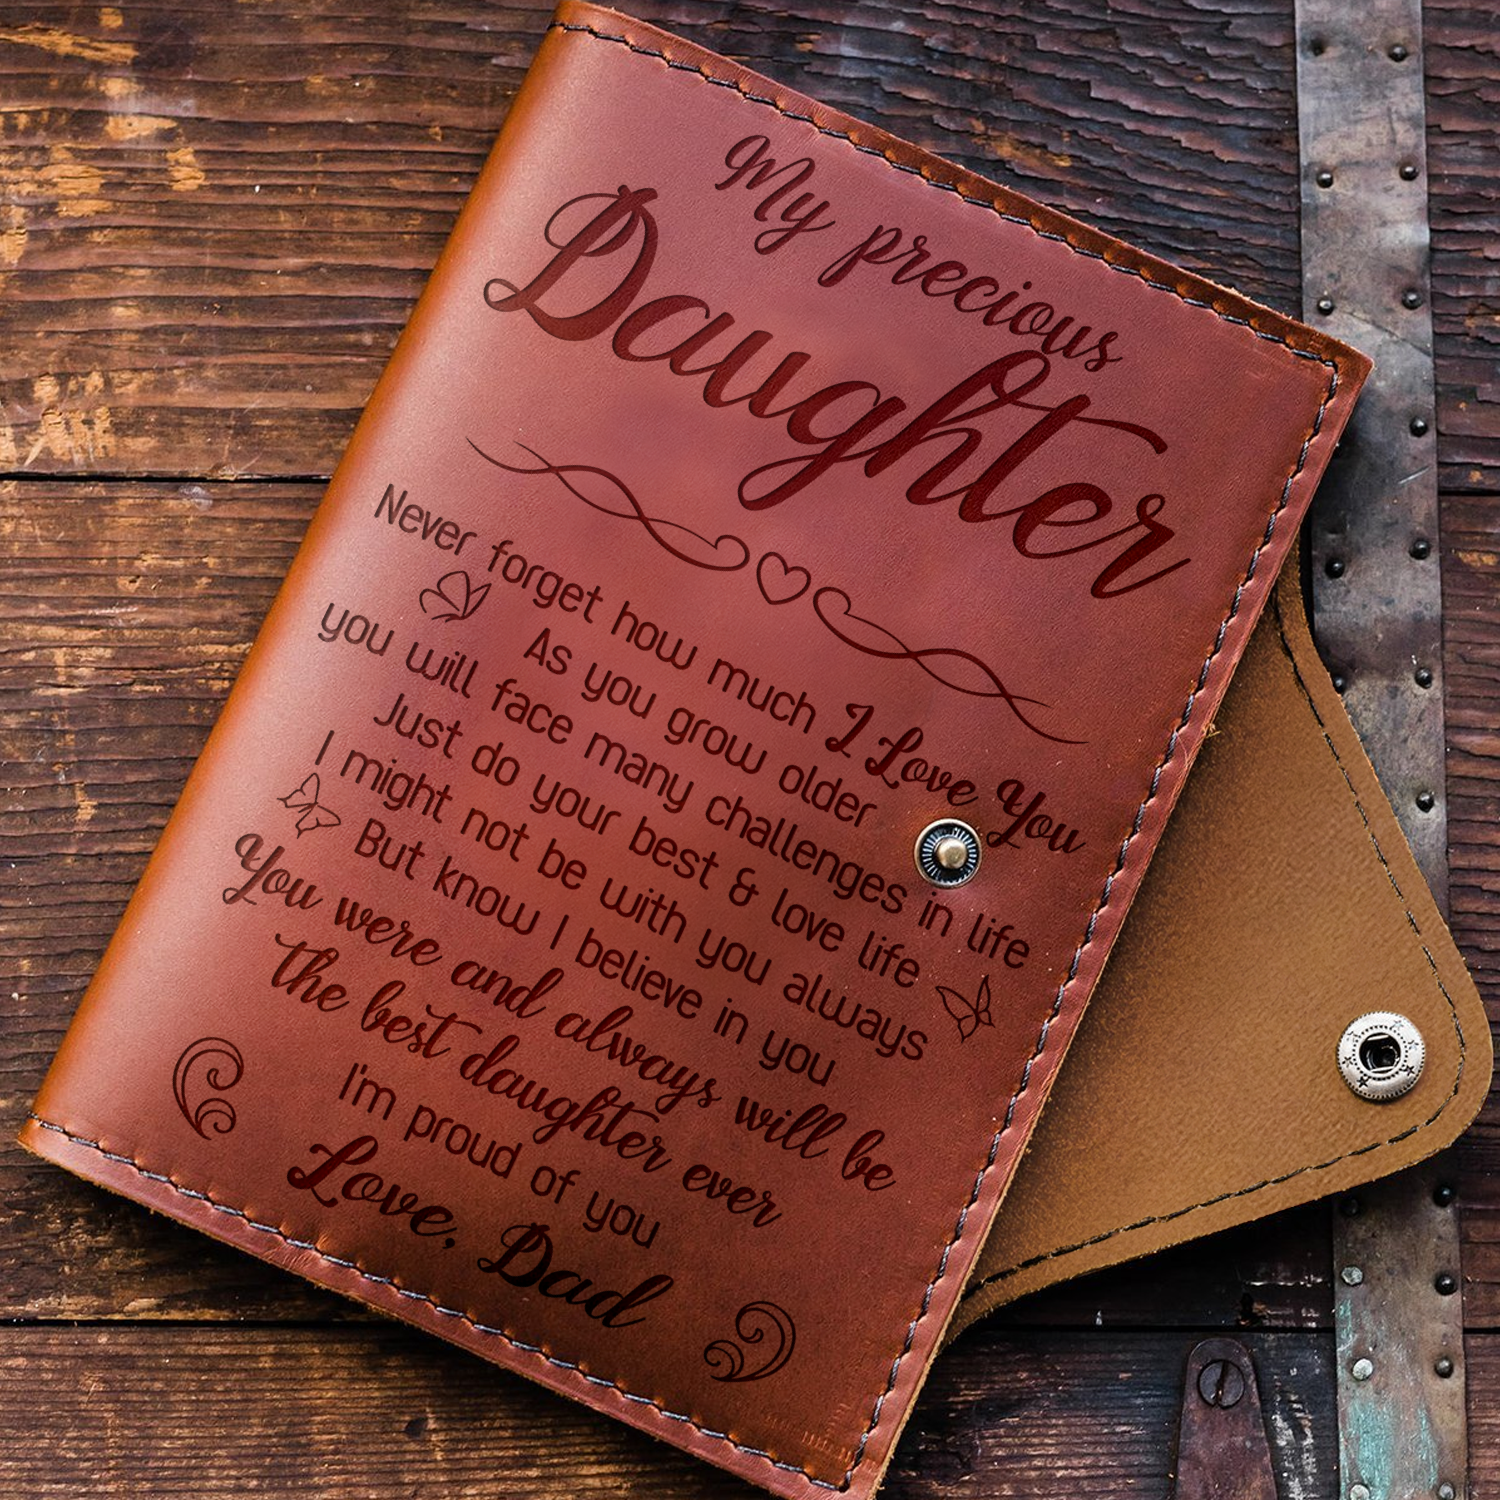 My precious
Daughter
Never forget how much I Love You
As you grow older
you will face many challenges in life
Just do your best & love life
I might not be with you always
But know I believe in you
You were and always will be
the best daughter ever
I'm proud of you
Love, Dad